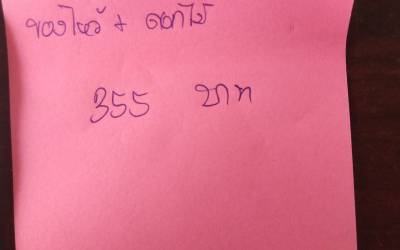 ของไหว้ + ดอกไม้
355 บาท